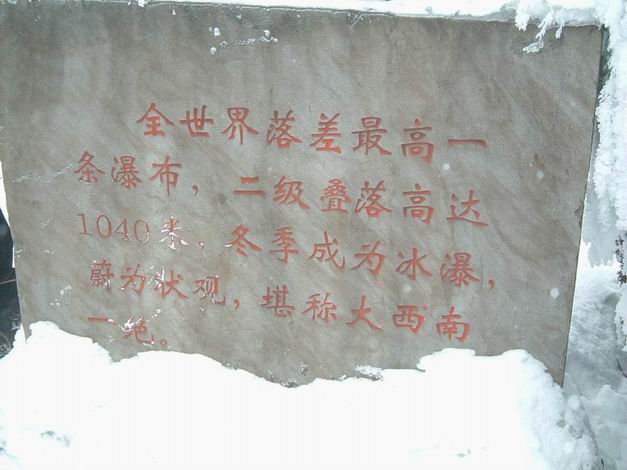 全世界落差最高一
条瀑布，二级叠落高达
1040米，冬季成为冰瀑，
蔚为状观，堪称大西南
一绝。